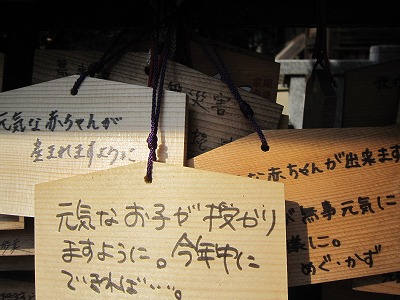 元気な赤ちゃんが
産まれますように
災害
な赤ちゃんが出来ます
が無事元気に
に。
めぐ・かず
元気なお子が授かり
ますように。今年中に
できれば・・・。